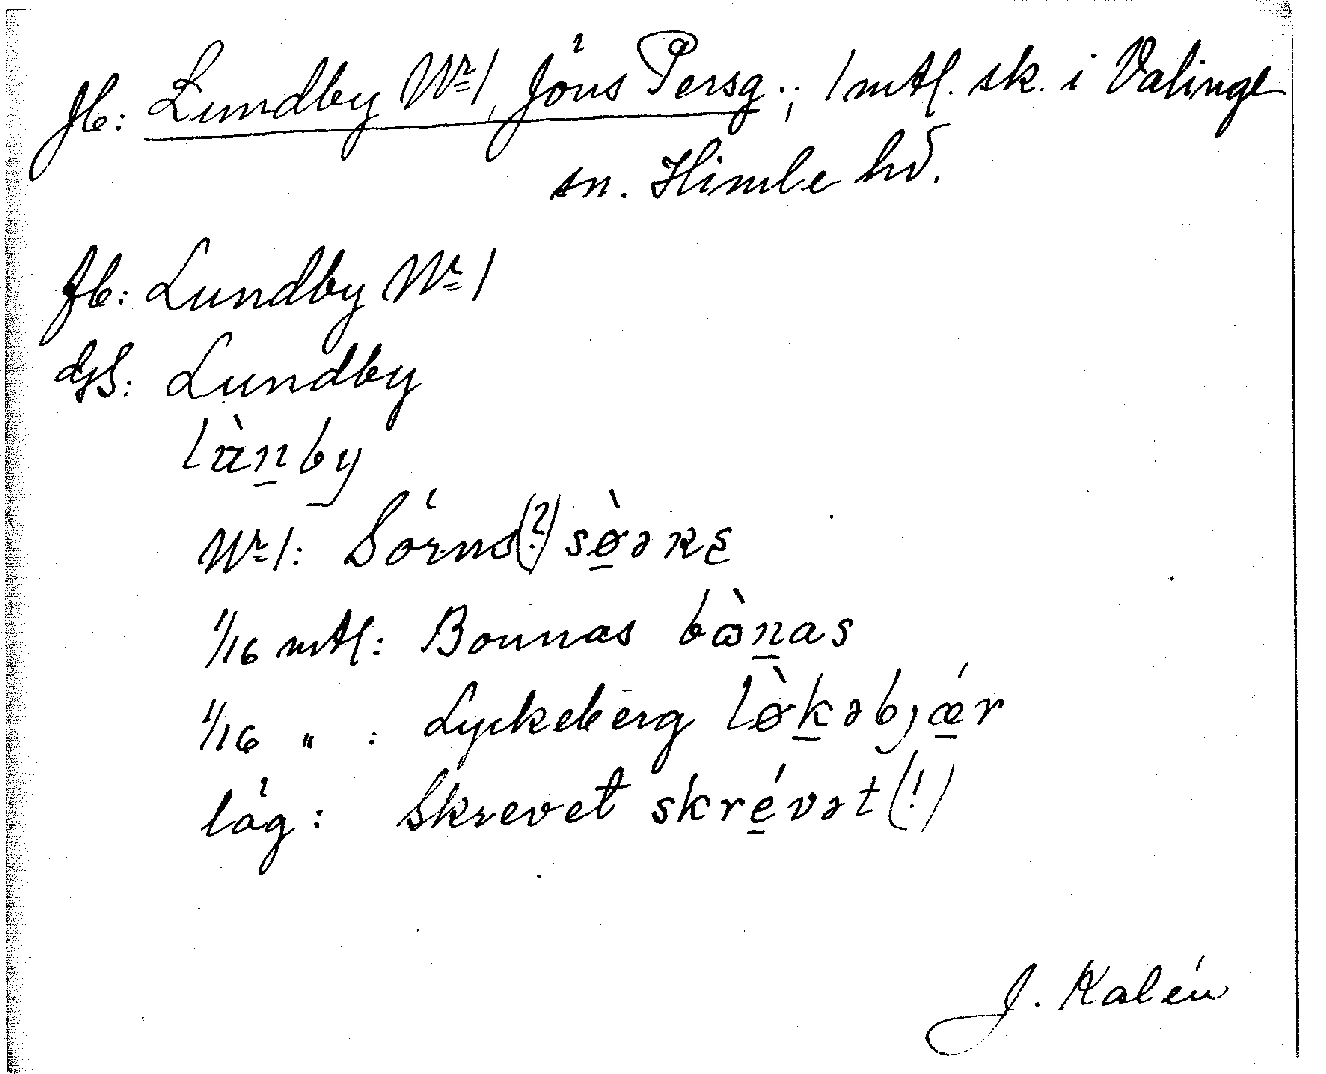 Jb: Lundby Nr 1, Jöns Persg.; 1 mtl. sk. i Valinge
sn. Himle hd.
Jb: Lundby Nr 1
GS: Lundby
lànby
Nr 1: Sörns(?) sø̀əʀɛ
1/16 mtl: Bonnas bònas
1/16 " : Lyckeberg lø̀kəbjǽr
låg: Skrevet skrévət (!)
J. Kalén